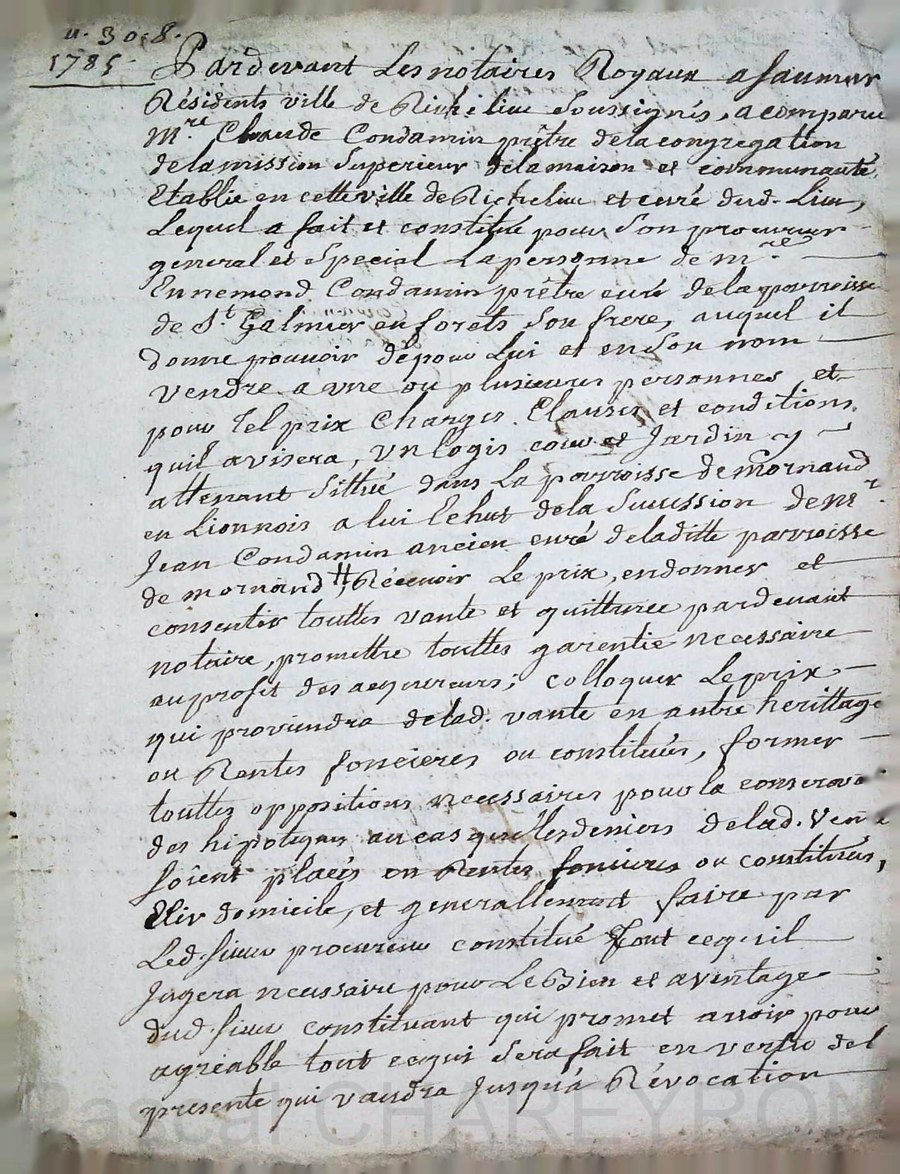 u. 30.8.
1785.
Pardevant Les notaires Royaux a Saumur
Résidents ville de Richelieu Soussignés, a comparu
Mre. Claude Condamin prêtre de la congregation
de la mission Superieur de la maison et communauté
Etablie en cette ville de Richelieu et curé dud. Lieu,
Lequel a fait et constitué pour Son procureur
general et Special La personne de mre.
Ennemond Condamin prêtre curé de la parroisse
de St. Galmier en forets Son frere, auquel il
donne pouvoir de pour Lui et en Son nom
vendre a une ou plusieures personnes et
pour tel prix Charges Clauses et conditions
quil avisera, un logis cour et Jardin y
attenant Sittué dans La parroisse de Mornand
en Lionnois a lui Echus de la Sucession de mr.
Jean Condamin ancien curé de laditte parroisse
de mornand #, Recevoir Le prix, en donner et
consentir touttes vante et quittance pardevant
notaire, promettre touttes garentie necessaire
au profit des acquereurs; colloquer Le prix
qui proviendra de lad. vante en autre herittage
ou Rentes foncieres ou constituées, former
touttes oppositions necessaires pour la conserva
des hipoteques au cas que les deniers de lad. Ven
Soient placés en Rentes foncieres ou constituées,
Elir domicile, et generallement faire par
Led. Sieur procureur constitué tout ce qu'il
Jugera necessaire pour Le Bien et aventage
dud. Sieur constituant qui promet avoir pour
agréable tout ce qui Sera fait en vertu de l
presente qui vaudra Jusqu'a Révocation
Pascal CHARLEYRON